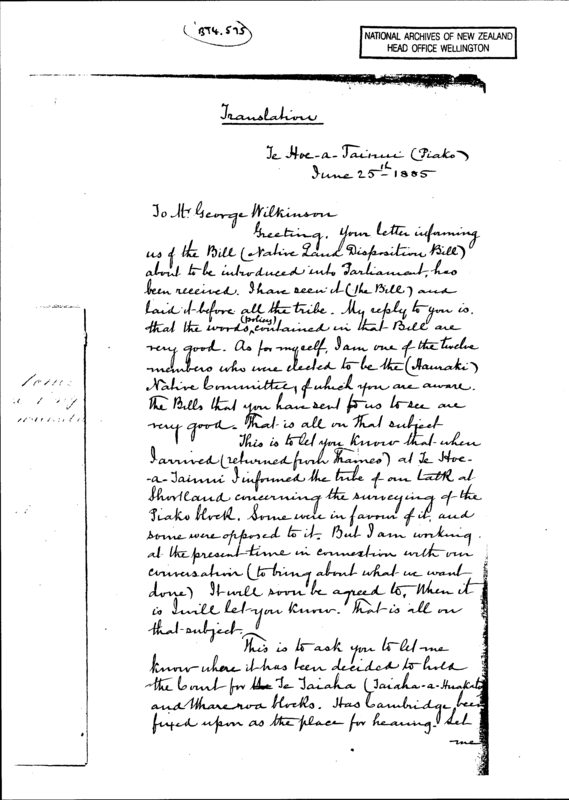 BT4.575
NATIONAL ARCHIVES OF NEW ZEALAND
HEAD OFFICE WELLINGTON
Translation
Te Hoe-a-Tainui (Piako)
June 25th 1885
To Mr George Wilkinson
Greeting. Your letter informing
us of the Bill (Native Land Disposition Bill)
about to be introduced into Parliament, has
been received. I have seen it (the Bill) and
laid it before all the tribe. My reply to you is,
(policy)
that the words contained in that Bill are
very good. As for myself, I am one of the twelve
members who were elected to be the (Hauraki)
Native Committee, of which you are aware.
The Bills that you have sent for us to see are
very good. That is all on that subject
This is to let you know that when
I arrived (returned from Thames) at Te Hoe-
-a-Tainui I informed the tribe of our talk at
Shortland concerning the surveying of the
Piako block. Some were in favour of it, and
some were opposed to it. But I am working
at the present time in connection with our
conversation (to bring about what we want
done) It will soon be agreed to. When it
is I will let you know. That is all on
that subject.
This is to ask you to let me
know where it has been decided to hold
the Court for the Te Taiaha (Taiaha-a-Huakatoa
and Whareroa blocks. Has Cambridge been
fixed upon as the place for hearing. Let
me